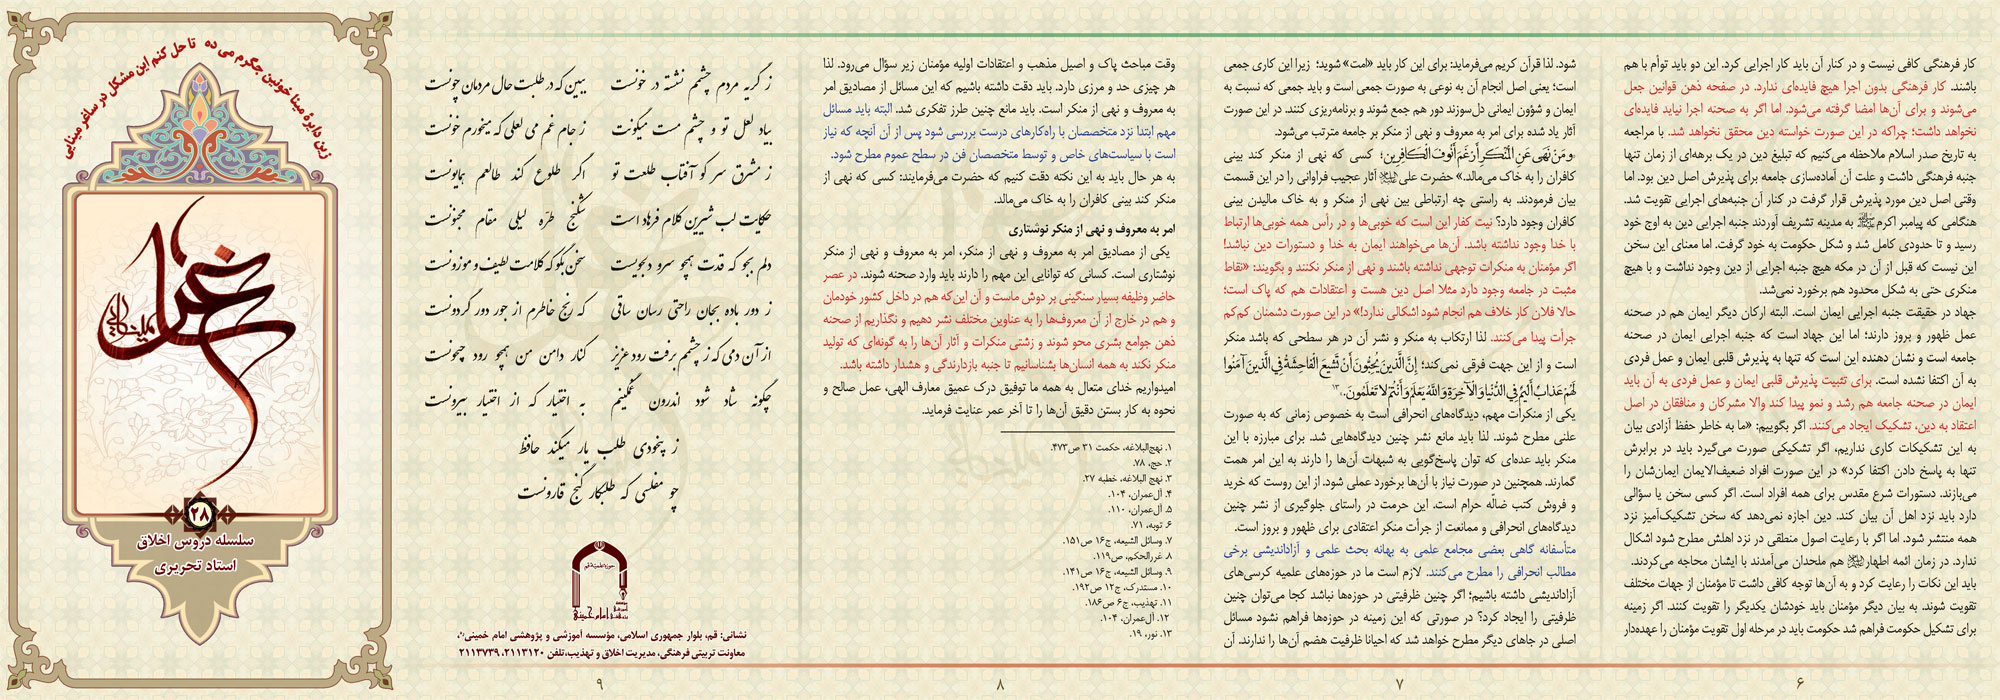 کار فرهنگی کافی نیست و در کنار آن باید کار اجرایی کرد. این دو باید توأم با هم
باشند. کار فرهنگی بدون اجرا هیچ فایده‌ای ندارد. در صفحه ذهن قوانین جعل
می‌شوند و برای آن‌ها امضا گرفته می‌شود. اما اگر به صحنه اجرا نیاید فایده‌ای
نخواهد داشت؛ چراکه در این صورت خواسته دین محقق نخواهد شد. با مراجعه
به تاریخ صدر اسلام ملاحظه می‌کنیم که تبلیغ دین در یک برهه‌ای از زمان تنها
جنبه فرهنگی داشت و علت آن آماده‌سازی جامعه برای پذیرش اصل دین بود. اما
وقتی اصل دین مورد پذیرش قرار گرفت در کنار آن جنبه‌های اجرایی تقویت شد.
هنگامی که پیامبر اکرمﷺ به مدینه تشریف آوردند جنبه اجرایی دین به اوج خود
رسید و تا حدودی کامل شد و شکل حکومت به خود گرفت. اما معنای این سخن
این نیست که قبل از آن در مکه هیچ جنبه اجرایی از دین وجود نداشت و با هیچ
منکری حتی به شکل محدود هم برخورد نمی‌شد.
جهاد در حقیقت جنبه اجرایی ایمان است. البته ارکان دیگر ایمان هم در صحنه
عمل ظهور و بروز دارند؛ اما این جهاد است که جنبه اجرایی ایمان در صحنه
جامعه است و نشان دهنده این است که تنها به پذیرش قلبی ایمان و عمل فردی
به آن اکتفا نشده است. برای تثبیت پذیرش قلبی ایمان و عمل فردی به آن باید
ایمان در صحنه جامعه هم رشد و نمو پیدا کند والا مشرکان و منافقان در اصل
اعتقاد به دین، تشکیک ایجاد می‌کنند. اگر بگوییم: «ما به خاطر حفظ آزادی بیان
به این تشکیکات کاری نداریم، اگر تشکیکی صورت می‌گیرد باید در برابرش
تنها به پاسخ دادن اکتفا کرد» در این صورت افراد ضعیف‌الایمان ایمان‌شان را
می‌بازند. دستورات شرع مقدس برای همه افراد است. اگر کسی سخن یا سؤالی
دارد باید نزد اهل آن بیان کند. دین اجازه نمی‌دهد که سخن تشکیک‌آمیز نزد
همه منتشر شود. اما اگر با رعایت اصول منطقی در نزد اهلش مطرح شود اشکال
ندارد. در زمان ائمه اطهار هم ملحدان می‌آمدند با ایشان محاجه می‌کردند.
باید این نکات را رعایت کرد و به آن‌ها توجه کافی داشت تا مؤمنان از جهات مختلف
تقویت شوند. به بیان دیگر مؤمنان باید خودشان یکدیگر را تقویت کنند. اگر زمینه
برای تشکیل حکومت فراهم شد حکومت باید در مرحله اول تقویت مؤمنان را عهده‌دار
۶
شود. لذا قرآن کریم می‌فرماید: برای این کار باید «امت» شوید؛ زیرا این کاری جمعی
است؛ یعنی اصل انجام آن به نوعی به صورت جمعی است و باید جمعی که نسبت به
ایمان و شؤون ایمانی دل‌سوزند دور هم جمع شوند و برنامه‌ریزی کنند. در این صورت
آثار یاد شده برای امر به معروف و نهی از منکر بر جامعه مترتب می‌شود.
«وَمَنْ نَهَى عَنِ الْمُنْكَرِ أَرْغَمَ أُنُوفَ الْكَافِرِينَ؛ کسی که نهی از منکر کند بینی
کافران را به خاک می‌مالد.» حضرت علی آثار عجیب فراوانی را در این قسمت
بیان فرمودند. به راستی چه ارتباطی بین نهی از منکر و به خاک مالیدن بینی
کافران وجود دارد؟ نیت کفار این است که خوبی‌ها و در رأس همه خوبی‌ها ارتباط
با خدا وجود نداشته باشد. آن‌ها می‌خواهند ایمان به خدا و دستورات دین نباشد!
اگر مؤمنان به منکرات توجهی نداشته باشند و نهی از منکر نکنند و بگویند: «نقاط
مثبت در جامعه وجود دارد مثلا اصل دین هست و اعتقادات هم که پاک است؛
حالا فلان کار خلاف هم انجام شود اشکالی ندارد!» در این صورت دشمنان کم‌کم
جرأت پیدا می‌کنند. لذا ارتکاب به منکر و نشر آن در هر سطحی که باشد منکر
است و از این جهت فرقی نمی‌کند؛ إِنَّ الَّذِينَ يُحِبُّونَ أَنْ تَشِيعَ الْفَاحِشَةُ فِي الَّذِينَ آمَنُوا
لَهُمْ عَذَابٌ أَلِيمٌ فِي الدُّنْيَا وَالْآخِرَةِ وَاللَّهُ يَعْلَمُ وَأَنْتُمْ لَا تَعْلَمُونَ.۱۳
یکی از منکرات مهم، دیدگاه‌های انحرافی است به خصوص زمانی که به صورت
علنی مطرح شوند. لذا باید مانع نشر چنین دیدگاه‌هایی شد. برای مبارزه با این
منکر باید عده‌ای که توان پاسخ‌گویی به شبهات آن‌ها را دارند به این امر همت
گمارند. همچنین در صورت نیاز با آن‌ها برخورد عملی شود. از این روست که خرید
و فروش کتب ضالّه حرام است. این حرمت در راستای جلوگیری از نشر چنین
دیدگاه‌های انحرافی و ممانعت از جرأت منکر اعتقادی برای ظهور و بروز است.
متأسفانه گاهی بعضی مجامع علمی به بهانه بحث علمی و آزاداندیشی برخی
مطالب انحرافی را مطرح می‌کنند. لازم است ما در حوزه‌های علمیه کرسی‌های
آزاداندیشی داشته باشیم؛ اگر چنین ظرفیتی در حوزه‌ها نباشد کجا می‌توان چنین
ظرفیتی را ایجاد کرد؟ در صورتی که این زمینه در حوزه‌ها فراهم نشود مسائل
اصلی در جاهای دیگر مطرح خواهد شد که احیانا ظرفیت هضم آن‌ها را ندارند. آن
۷
وقت مباحث پاک و اصیل مذهب و اعتقادات اولیه مؤمنان زیر سؤال می‌رود. لذا
هر چیزی حد و مرزی دارد. باید دقت داشته باشیم که این مسائل از مصادیق امر
به معروف و نهی از منکر است. باید مانع چنین طرز تفکری شد. البته باید مسائل
مهم ابتدا نزد متخصصان با راه‌کارهای درست بررسی شود پس از آن آنچه که نیاز
است با سیاست‌های خاص و توسط متخصصان فن در سطح عموم مطرح شود.
به هر حال باید به این نکته دقت کنیم که حضرت می‌فرمایند: کسی که نهی از
منکر کند بینی کافران را به خاک می‌مالد.
امر به معروف و نهی از منکر نوشتاری
یکی از مصادیق امر به معروف و نهی از منکر، امر به معروف و نهی از منکر
نوشتاری است. کسانی که توانایی این مهم را دارند باید وارد صحنه شوند. در عصر
حاضر وظیفه بسیار سنگینی بر دوش ماست و آن این‌که هم در داخل کشور خودمان
و هم در خارج از آن معروف‌ها را به عناوین مختلف نشر دهیم و نگذاریم از صحنه
ذهن جوامع بشری محو شوند و زشتی منکرات و آثار آن‌ها را به گونه‌ای که تولید
منکر نکند به همه انسان‌ها بشناسانیم تا جنبه بازدارندگی و هشدار داشته باشد.
امیدواریم خدای متعال به همه ما توفیق درک عمیق معارف الهی، عمل صالح و
نحوه به کار بستن دقیق آن‌ها را تا آخر عمر عنایت فرماید.
۱. نهج‌البلاغه، حکمت ۳۱ ص۴۷۳.
۲. حج، ۷۸.
۳. نهج البلاغه، خطبه ۲۷.
۴. آل‌عمران، ۱۰۴.
۵. آل‌عمران، ۱۱۰.
۶. توبه، ۷۱.
۷. وسائل الشیعه، ج۱۶ ص۱۵۱.
۸. غررالحکم، ص۱۱۹.
۹. وسائل الشیعه، ج۱۶ ص۱۴۱.
۱۰. مستدرک، ج۱۲ ص۱۹۲.
۱۱. تهذیب، ج۶ ص۱۸۶.
۱۲. آل‌عمران، ۱۰۴.
۱۳. نور، ۱۹.
۸
ز گریه مردم چشمم نشسته در خونست ببین که در طلبت حال مردمان چونست
بیاد لعل تو و چشم مست میگونت ز جام غم می لعلی که میخورم خونست
ز مشرق سر کو آفتاب طلعت تو اگر طلوع کند طالعم همایونست
حکایت لب شیرین کلام فرهاد است شکنج طره لیلی مقام مجنونست
دلم بجو که قدت همچو سرو دلجویست سخن بگو که کلامت لطیف و موزونست
ز دور باده بجان راحتی رسان ساقی که رنج خاطرم از جور دور گردونست
از آن دمی که ز چشمم برفت رود عزیز کنار دامن من همچو رود جیحونست
چگونه شاد شود اندرون غمگینم به اختیار که از اختیار بیرونست
ز بیخودی طلب یار میکند حافظ
چو مفلسی که طلبکار گنج قارونست
حوزه علمیه قم
امام خمینی
نشانی: قم، بلوار جمهوری اسلامی، مؤسسه آموزشی و پژوهشی امام خمینی
معاونت تربیتی فرهنگی، مدیریت اخلاق و تهذیب،تلفن ۲۱۱۳۱۲۰، ۲۱۱۳۷۳۹
۹
زین دایرهٔ مینا خونین جگرم می ده تا حل کنم این مشکل در ساغر مینایی
۲۸
سلسله دروس اخلاق
استاد تحریری